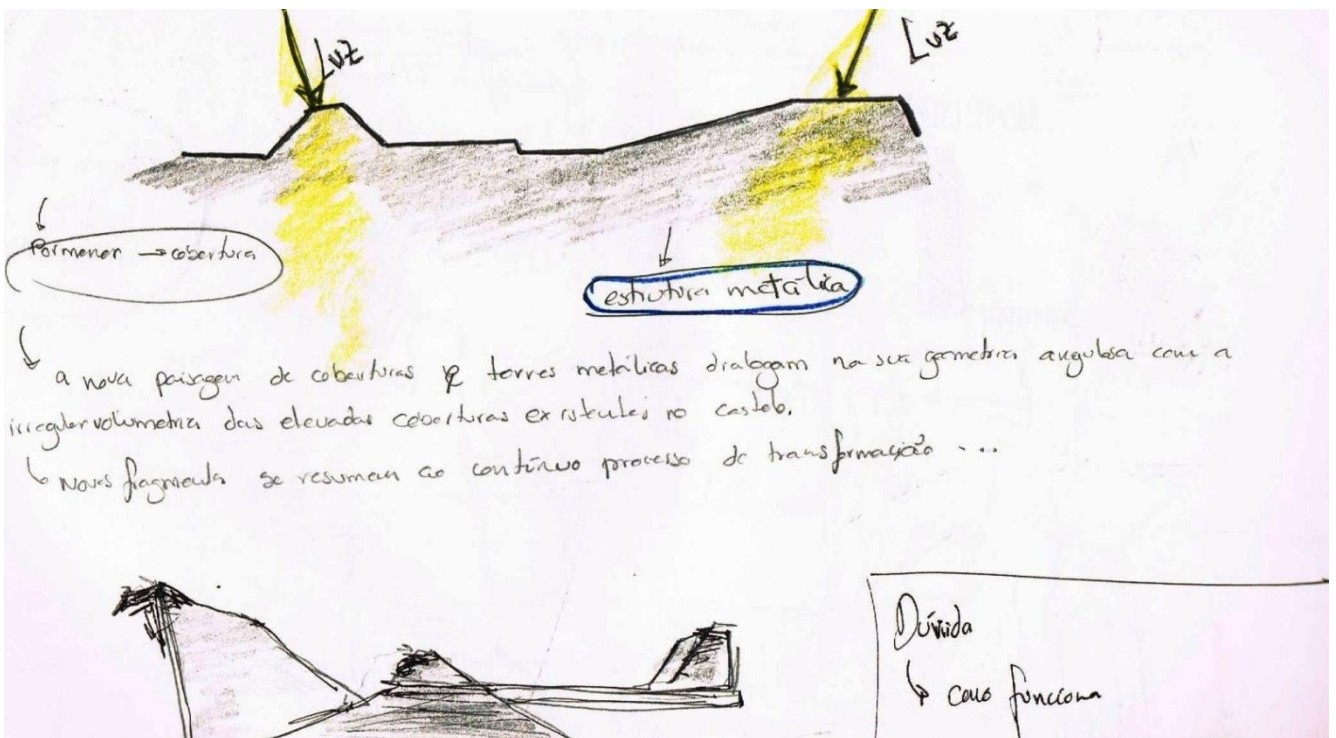 Luz
Luz
Pormenor → cobertura
estrutura metálica
a nova paisagem de coberturas e torres metálicas dialogam na sua geometria angulosa com a
irregular volumetria das elevadas coberturas existentes no castelo.
Novos fragmentos se resumem ao contínuo processo de transformação ...
Dúvida
como funciona